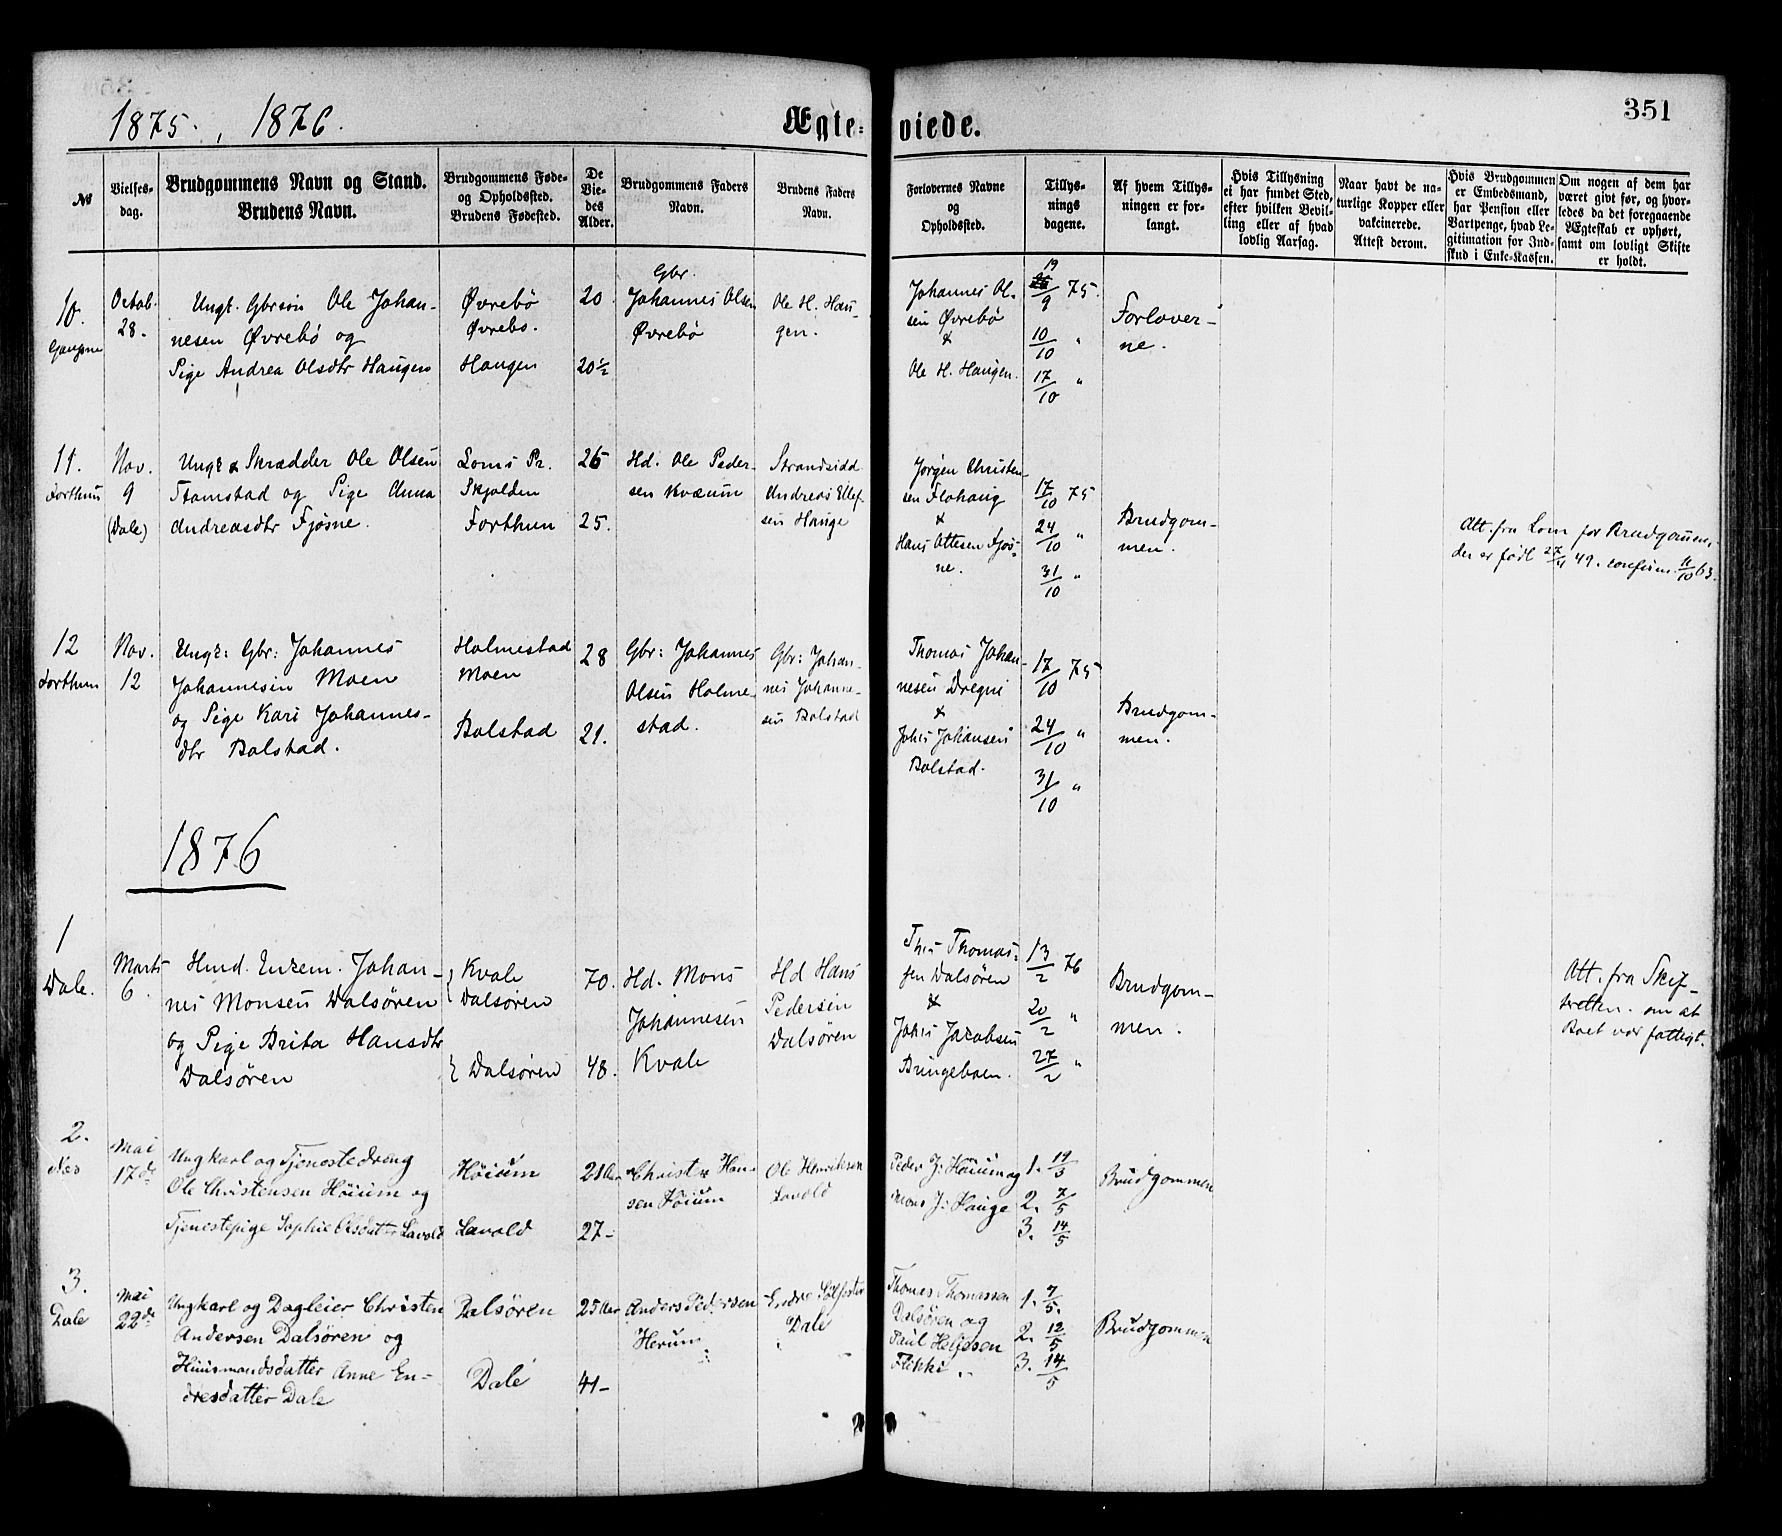 1875. , 1876.
Ægte-
viede.
351
№
Vielses-
dag.
Brudgommens Navn og Stand.
Brudens Navn.
Brudgommens Føde-
og Opholdssted.
Brudens Fødested.
De
Vie-
des
Alder.
Brudgommens Faders
Navn.
Brudens Faders
Navn.
Forlovernes Navne
og
Opholdssted.
Tillys-
nings
dagene.
Af hvem Tillys-
ningen er for-
langt.
Hvis Tillysning
ei har fundet Sted,
efter hvilken Bevil-
ling eller af hvad
lovlig Aarsag.
Naar havt de na-
turlige Kopper eller
vakcinerede.
Attest derom.
Hvis Brudgommen
er Embedsmand,
har Pension eller
Vartpenge, hvad Le-
gitimation for Ind-
skud i Enke-Kassen.
Om nogen af dem har
været givt før, og hvor-
ledes da det foregaaende
Ægteskab er ophørt,
samt om lovligt Skifte
er holdt.
10.
Octob.
28.
Ungk. Gbrsøn Ole Johan-
nesen Øvrebø og
Pige Andrea Olsdtr Haugen
Øvrebø
Øvrebø.
Haugen
20
20½
Gbr.
Johannes Olsen
Øvrebø
Ole H. Hau-
gen.
Johannes Ol-
sen Øvrebø
&
Ole H. Haugen.
19
9 75.
10/10 "
17/10 "
Forlover-
ne.
11.
Forthun
(Dale)
Nov.
9
Ungk & Skrædder Ole Olsen
Stamstad og Pige Anna
Andreasdtr Fjøsne.
Loms Pr.
Skjolden
Forthun
26
25.
Hd. Ole Peder-
sen Kvæum
Strandsidd
Andreas Ellef-
sen Hauge
Jørgen Christen-
sen Flohaug
&
Hans Ottesen Fjøs-
ne.
17/10 75
24/10 "
31/10 "
Brudgom-
men.
Att. fra Lom for Brudgommen,
der er født 27/4 49. confirm. 11/10 63.
12
Forthun
Nov.
12
Ungk: Gbr: Johannes
Johannesen Moen
og Pige Kari Johannes-
dtr Bolstad.
Holmestad
Moen
Bolstad
28
21.
Gbr: Johannes
Olsen Holme-
stad.
Gbr: Johan-
nes Johanne-
sen Bolstad
Thomas Johan-
nesen Dregni
&
Johs Johansen
Bolstad.
17/10 75
24/10 "
31/10 "
Brudgom-
men.
1876
1
Dale.
Marts
6.
Hmd. Enkem. Johan-
nes Monsen Dalsøren
og Pige Brita Hansdtr
Dalsøren
Kvale
Dalsøren
Dalsøren
70.
48.
Hd. Mons
Johannesen
Kvale
Hd Hans
Pedersen
Dalsøren
Ths Thomas-
sen Dalsøren
&
Johs Jacobsen
Bringeboen.
13/2 76
20/2 "
27/2 "
Brudgom-
men.
Att. fra Skif-
teretten. om at
Boet var fattigt.
2.
Næs
Mai
17de
Ungkarl og Tjenestedreng
Ole Christensen Høium og
Tjenestepige Sophie Olsdatter Lavold
Høium
Lavold
21 Aar
27-
Christen Han-
sen Høium
Ole Henriksen
Lavold
Peder J: Høium og
Mons J: Hauge
1. 19/3
2. 7/5
3. 14/5
Brudgommen
3.
Dale
Mai
22de
Ungkarl og Dagleier Christen
Andersen Dalsøren og
Huusmandsdatter Anne En-
dresdatter Dale
Dalsøren
Dale
25 Aar
41-
Anders Pedersen
Herum
Endre Sølfester
Dale
Thomas Thomassen
Dalsøren og
Paul Helgesen
Flikki
1. 7/5.
2. 12/5
3. 14/5
Brudgommen